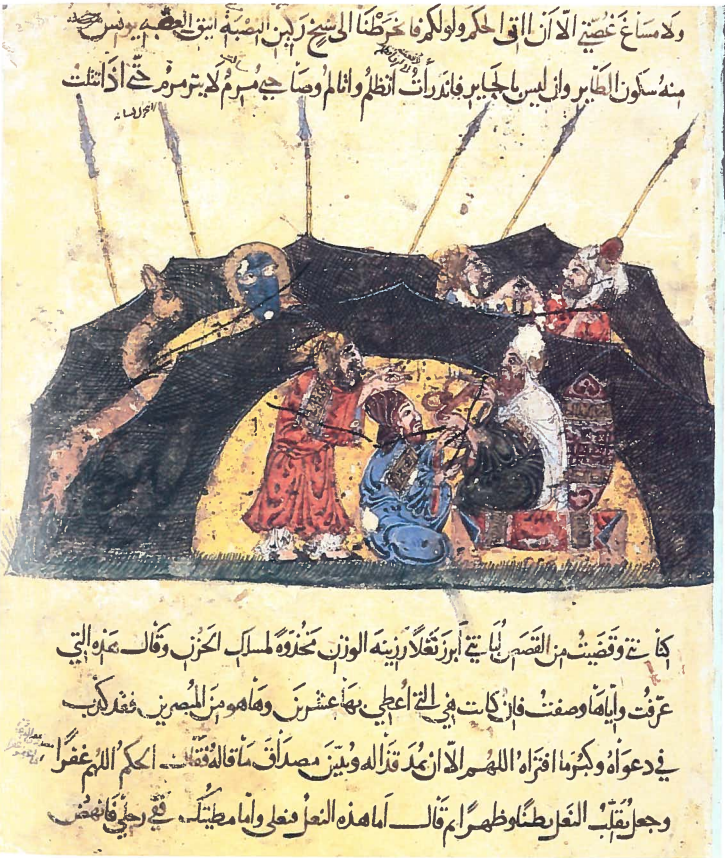 ولا مساغ غصتي الا ان ااتي الحكم ولو لكم فانخرطنا الى شيخ ركين النصبة انيق العصبه يونس
منه سكون الطاير وان ليس بالجاير فاندرأت أتظلم واتالم وصاحبي مرم لا يترمرم حتى اذا نثلت
كنانتي وقضيت من القصص لبانتي أبرز نعلا رزينه الوزن محذوة لمسلك الحزن وقال هذه التي
عرفت واياها وصفت فان كانت هي التي أعطي بها عشرين وها هو من المبصرين فقد كذب
في دعواه وكبر ما افتراه اللهم الا ان يمد قذاله ويبين مصداق ما قاله فقال الحكم اللهم غفرا
وجعل يقلب النعل بطنا وظهرا ثم قال اما هذه النعل فنعلي واما مطيتك ففي رحلي فانهض